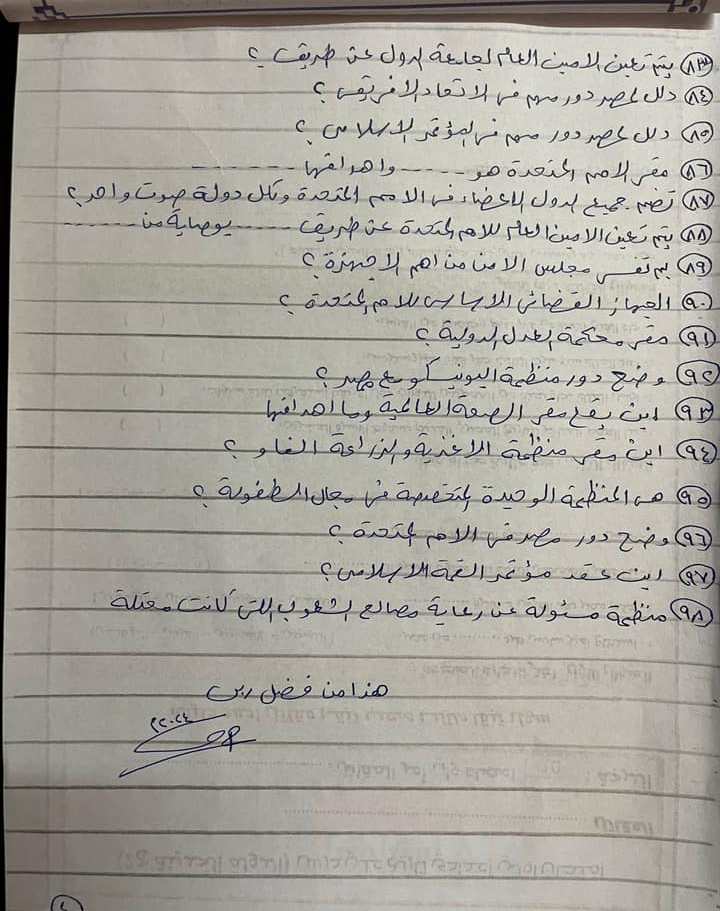 ٨٣ يتم تعين الامين العام لجامعة الدول عن طريق ؟
٨٤ دلل لمصر دور مهم فى الاتحاد الافريقى ؟
٨٥ دلل لمصر دور مهم فى المؤتمر الاسلامى ؟
٨٦ مقر الامم المتحدة هو ------ واهدافها -------
٨٧ تضم جميع الدول الاعضاء فى الامم المتحدة ولكل دولة صوت واحد ؟
٨٨ يتم تعين الامين العام للامم المتحدة عن طريق ------ بوصاية من -------
٨٩ بم تفسر مجلس الامن من اهم الاجهزة ؟
٩٠ الجهاز القضائى الاساسى للامم المتحدة ؟
٩١ مقر محكمة العدل الدولية ؟
٩٢ وضح دور منظمة اليونيسكو مع مصر ؟
٩٣ اين يقع مقر الصحة العالمية وما اهدافها
٩٤ اين مقر منظمة الاغذية والزراعة الفاو ؟
٩٥ هى المنظمة الوحيدة المتخصصة فى مجال الطفولة ؟
٩٦ وضح دور مصر فى الامم المتحدة ؟
٩٧ اين عقد مؤتمر القمة الاسلامى ؟
٩٨ منظمة مسئولة عن رعاية مصالح الشعوب التى كانت محتلة
هذا من فضل ربى
٢٠٢٤